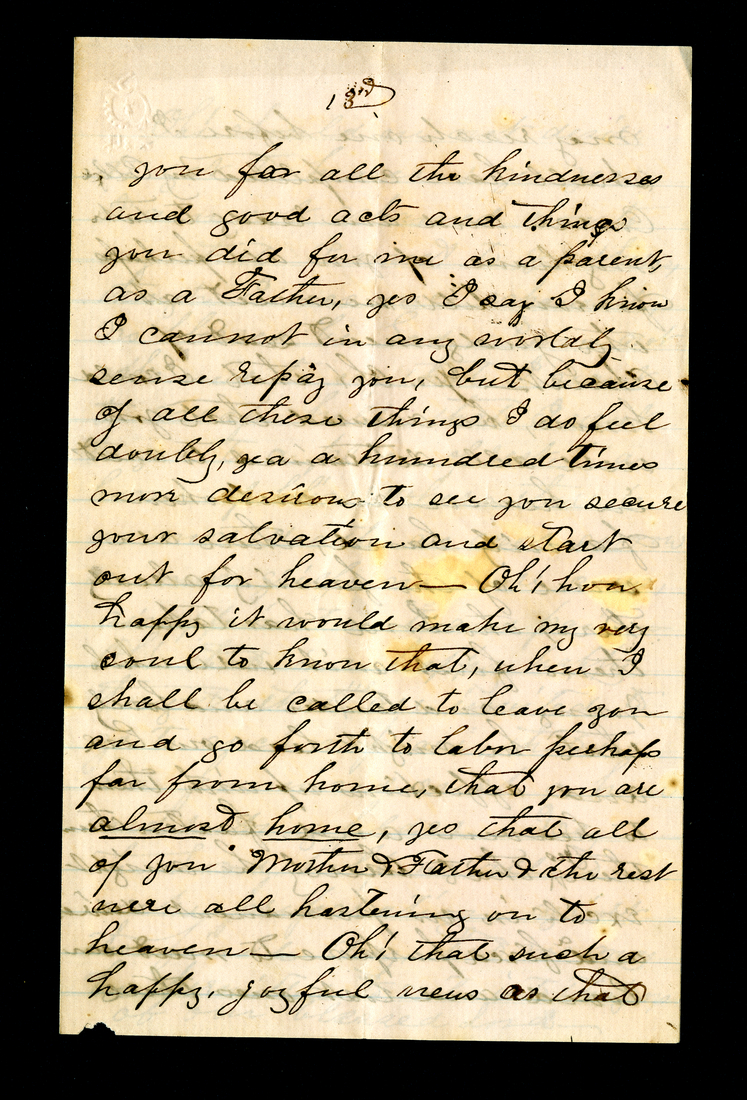 13rd
you for all the kindnesses
and good acts and things
you did for me as a parent,
as a Father, yes I say I know
I cannot in any worldly
sense repay you, but because
of all these things I do feel
doubly, yea a hundred times
more desirous to see you secure
your salvation and start
out for heaven — Oh! how
happy it would make my very
soul to know that, when I
shall be called to leave you
and go forth to labor perhaps
far from home, that you are
almost home, yes that all
of you Mother & Father & the rest
were all hastening on to
heaven — Oh! that such a
happy, joyful news as that